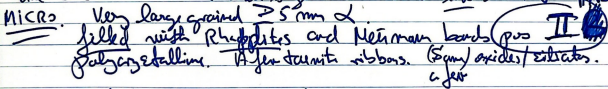 MICRO. Very large grained ≥ 5 mm α.
filled with Rhabdites and Neumann bands, pos II
polycrystalline. A few taenite ribbons. (Sgm) oxides / silicates.
a few